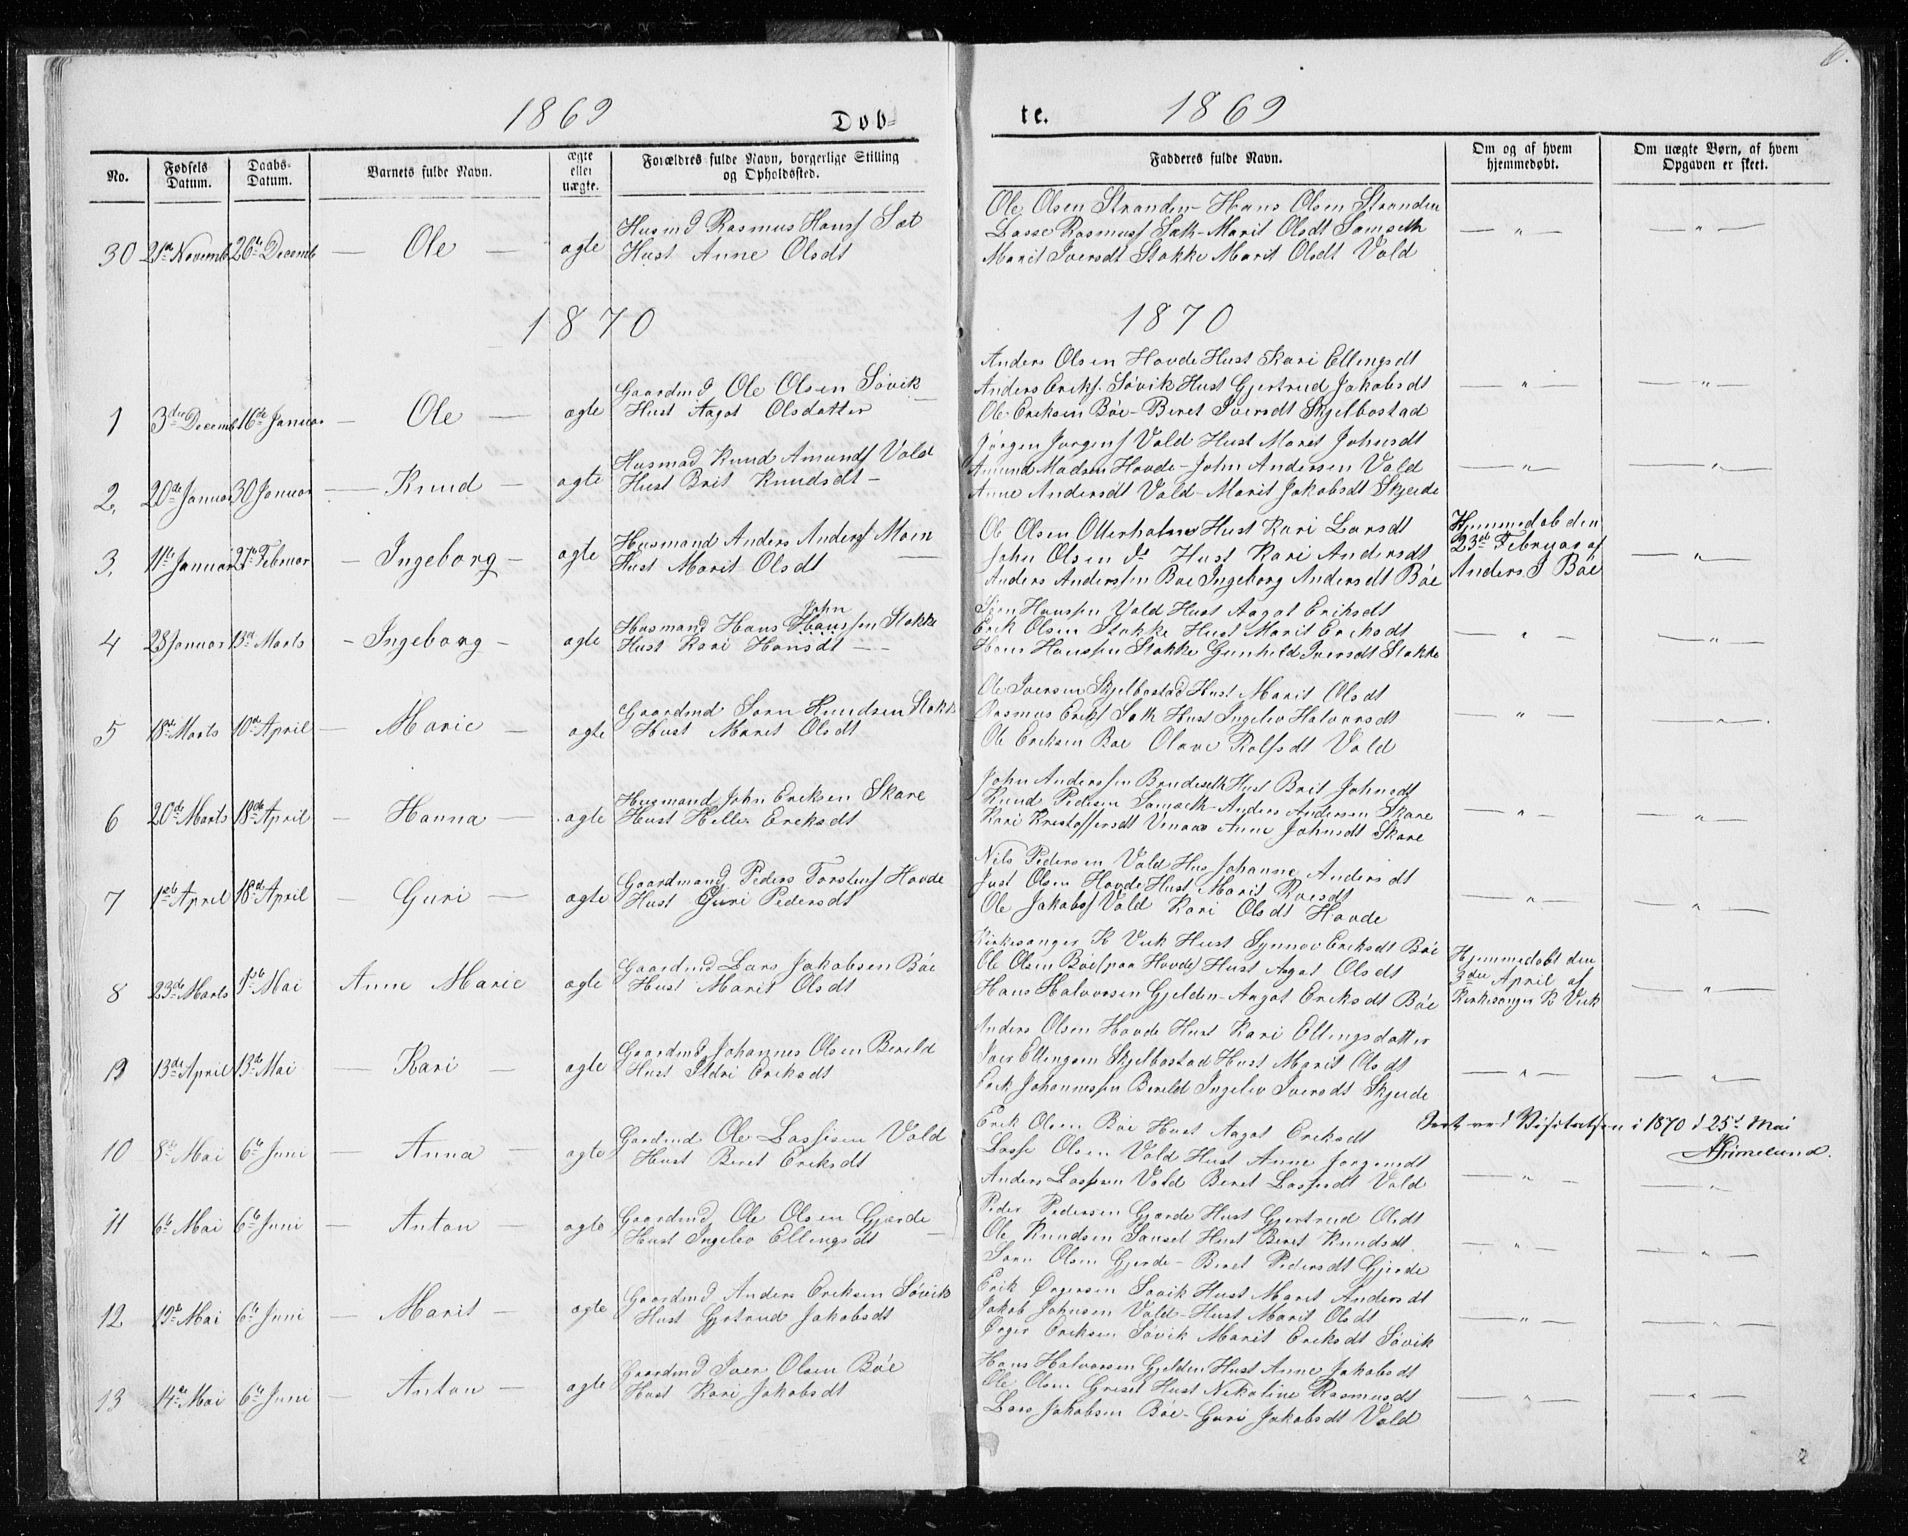 1869 Døb= te. 1869
No. Fødsels Datum. Daabs- Datum. Barnets fulde Navn. ægte eller uægte. Forældres fulde Navn, borgerlige Stilling og Opholdsted. Fadderes fulde Navn. Om og af hvem hjemmedøbt. Om uægte Børn, af hvem Opgaven er skeet.
30 21de Novemb 26de Decemb — Ole — ægte
Husmd Rasmus Hanss Sæt
Hust Anne Olsdt
Ole Olsen Stranden - Hans Olsen Stranden
Lasse Rasmuss Sæth - Marit Olsdt Samseth
Marit Iversdt Stokke Marit Olsdt Vold
— " — — " —
1870 1870
1 3die Decemb 16de Januar — Ole — ægte
Gaardmd Ole Olsen Søvik —
Hust Aagot Olsdatter
Anders Olsen Hovde Hust Kari Ellingsdt
Anders Eriks. Søvik Hust Gjertrud Jakobsdt
Ole Eriksen Bøe - Beret Iversdt Skjelbostad
— " — — " —
2. 20de Januar 30 Januar — Knud — ægte
Husmad Knud Amunds Vold
Hust Brit Knudsdt —
Jørgen Jørgens Vold Hust Maret Johnsdt
Amund Madsen Hovde - John Andersen Vold
Anne Andersdt Vold - Marit Jakobsdt Skjerde
— " — — " —
3. 11te Januar 27de Februar — Ingeborg — ægte
Husmand Anders Anderss Moen
Hust Marit Olsdt —
Ole Olsen Otterholm Hust Kari Larsdt
John Olsen do Hust Kari Andersdt
Anders Anderssen Bøe Ingeborg Andersdt Bøe
Hjemmedøb den
23de Februar af
Anders J Bøe
— " —
4 28 Januar 13de Marts - Ingeborg - ægte
John
Husmand Hans Hanssen Stokke
Hust Kari Hansdt — —
Hanssen Vold Hust Aagot Eriksdt
Erik Olsen Stokke Hust Marit Eriksdt
Hans Hanssen Stokke Gunhild Iversdt Stokke
— " — — " —
5 18de Marts 10de April — Marie — ægte
Gaardmd Søren Knudsen Stokke
Hust Maret Olsdt
Ole Iversen Skjelbostad Hust Marit Olsdt
Rasmus Eriks Sæth Hust Ingelev Halvorsdt
Ole Eriksen Bøe Olave Rolfsdt Vold
— " — — " —
6 20de Marts 18de April — Hanna — ægte
Husmand John Eriksen Skare
Hust Eriksdt
John Anderssen Brudeseth Hust Brit Johnsdt
Knud Pedersen Samseth - Anders Andersen Skare
Kari Kristoffersdt Venaas Anne Johnsdt Skare
— " — — " —
7 1ste April 18de April — Guri — ægte
Gaardmand Peders Torstens Hovde
Hust Guri Pedersdt
Nils Pedersen Vold Hus Johanne Andersdt
Just Olsen Hovde Hust Marit Roesdt
Ole Jakobss Vold Kari Olsdt Hovde
— " — — " —
8 23de Marts 1ste Mai Anne Marie ægte
Gaardmd Lars Jakobsen Bøe
Hust Marit Olsdt
Kirkesanger K Vik Hust Synnev Eriksdt Bøe
Ole Olsen Bøe (paa Hovde) Hust Aagot Olsdt
Hans Halvorsen Gjelden - Aagot Eriksdt Bøe
Hjemmedøbt den
3die April af
Kirkesanger K Vik
— " —
9 13de April 13de Mai — Kari — ægte
Gaardmd Johannes Olsen Berild
Hust Ildri Eriksdt
Anders Olsen Hovde Hust Kari Ellingsdatter
Iver Ellingsen Skjelbostad Hust Marit Olsdt
Erik Johannessen Berild Ingelev Iversdt Skjerde
— " — — " —
10 8de Mai 6te Juni — Anna — ægte
Gardmd Ole Lassesen Vold
Hust Beret Eriksdt
Erik Olsen Bøe Hust Aagot Eriksdt
Lasse Olsen Vold Hust Anne Jørgensdt
Anders Lassesen Vold Beret Lassesdt Vold
Seet ved Visitatsen i 1870 d 25de Mai
AGrimelund.
— " — — " —
11 6te Mai 6te Juni — Anton — ægte
Gaardmd Ole Olsen Gjærde
Hust Ingelev Ellingsdt —
Peder Pedersen Gjærde Hust Gjertrud Olsdt
Ole Knudsen Sanset Hust Beret Knudsdt
Søren Olsen Gjerde - Beret Pedersdt Gjerde
— " — — " —
12 19de Mai 6te Juni — Marit — ægte
Gaardmd Anders Eriksen Søvik
Hust Gjertrud Jakobsdt
Erik Ørgersen Søvik Hust Maret Andersdt
Jakob Johnsen Vold - Hust Marit Olsdt
Ørger Eriksen Søvik Marit Eriksdt Søvik
— " — — " —
13 14de Mai 6te Juni — Anton — ægte
Gaardmd Iver Olsen Bøe
Hust Kari Jakobsdt
Hans Halvorsen Gjelden Hust Anne Jakobsdt
Ole Olsen Griset Hust Nikoline Rasmusdt
Lars Jakobsen Bøe - Guri Jakobsdt Vold
— " — — " —